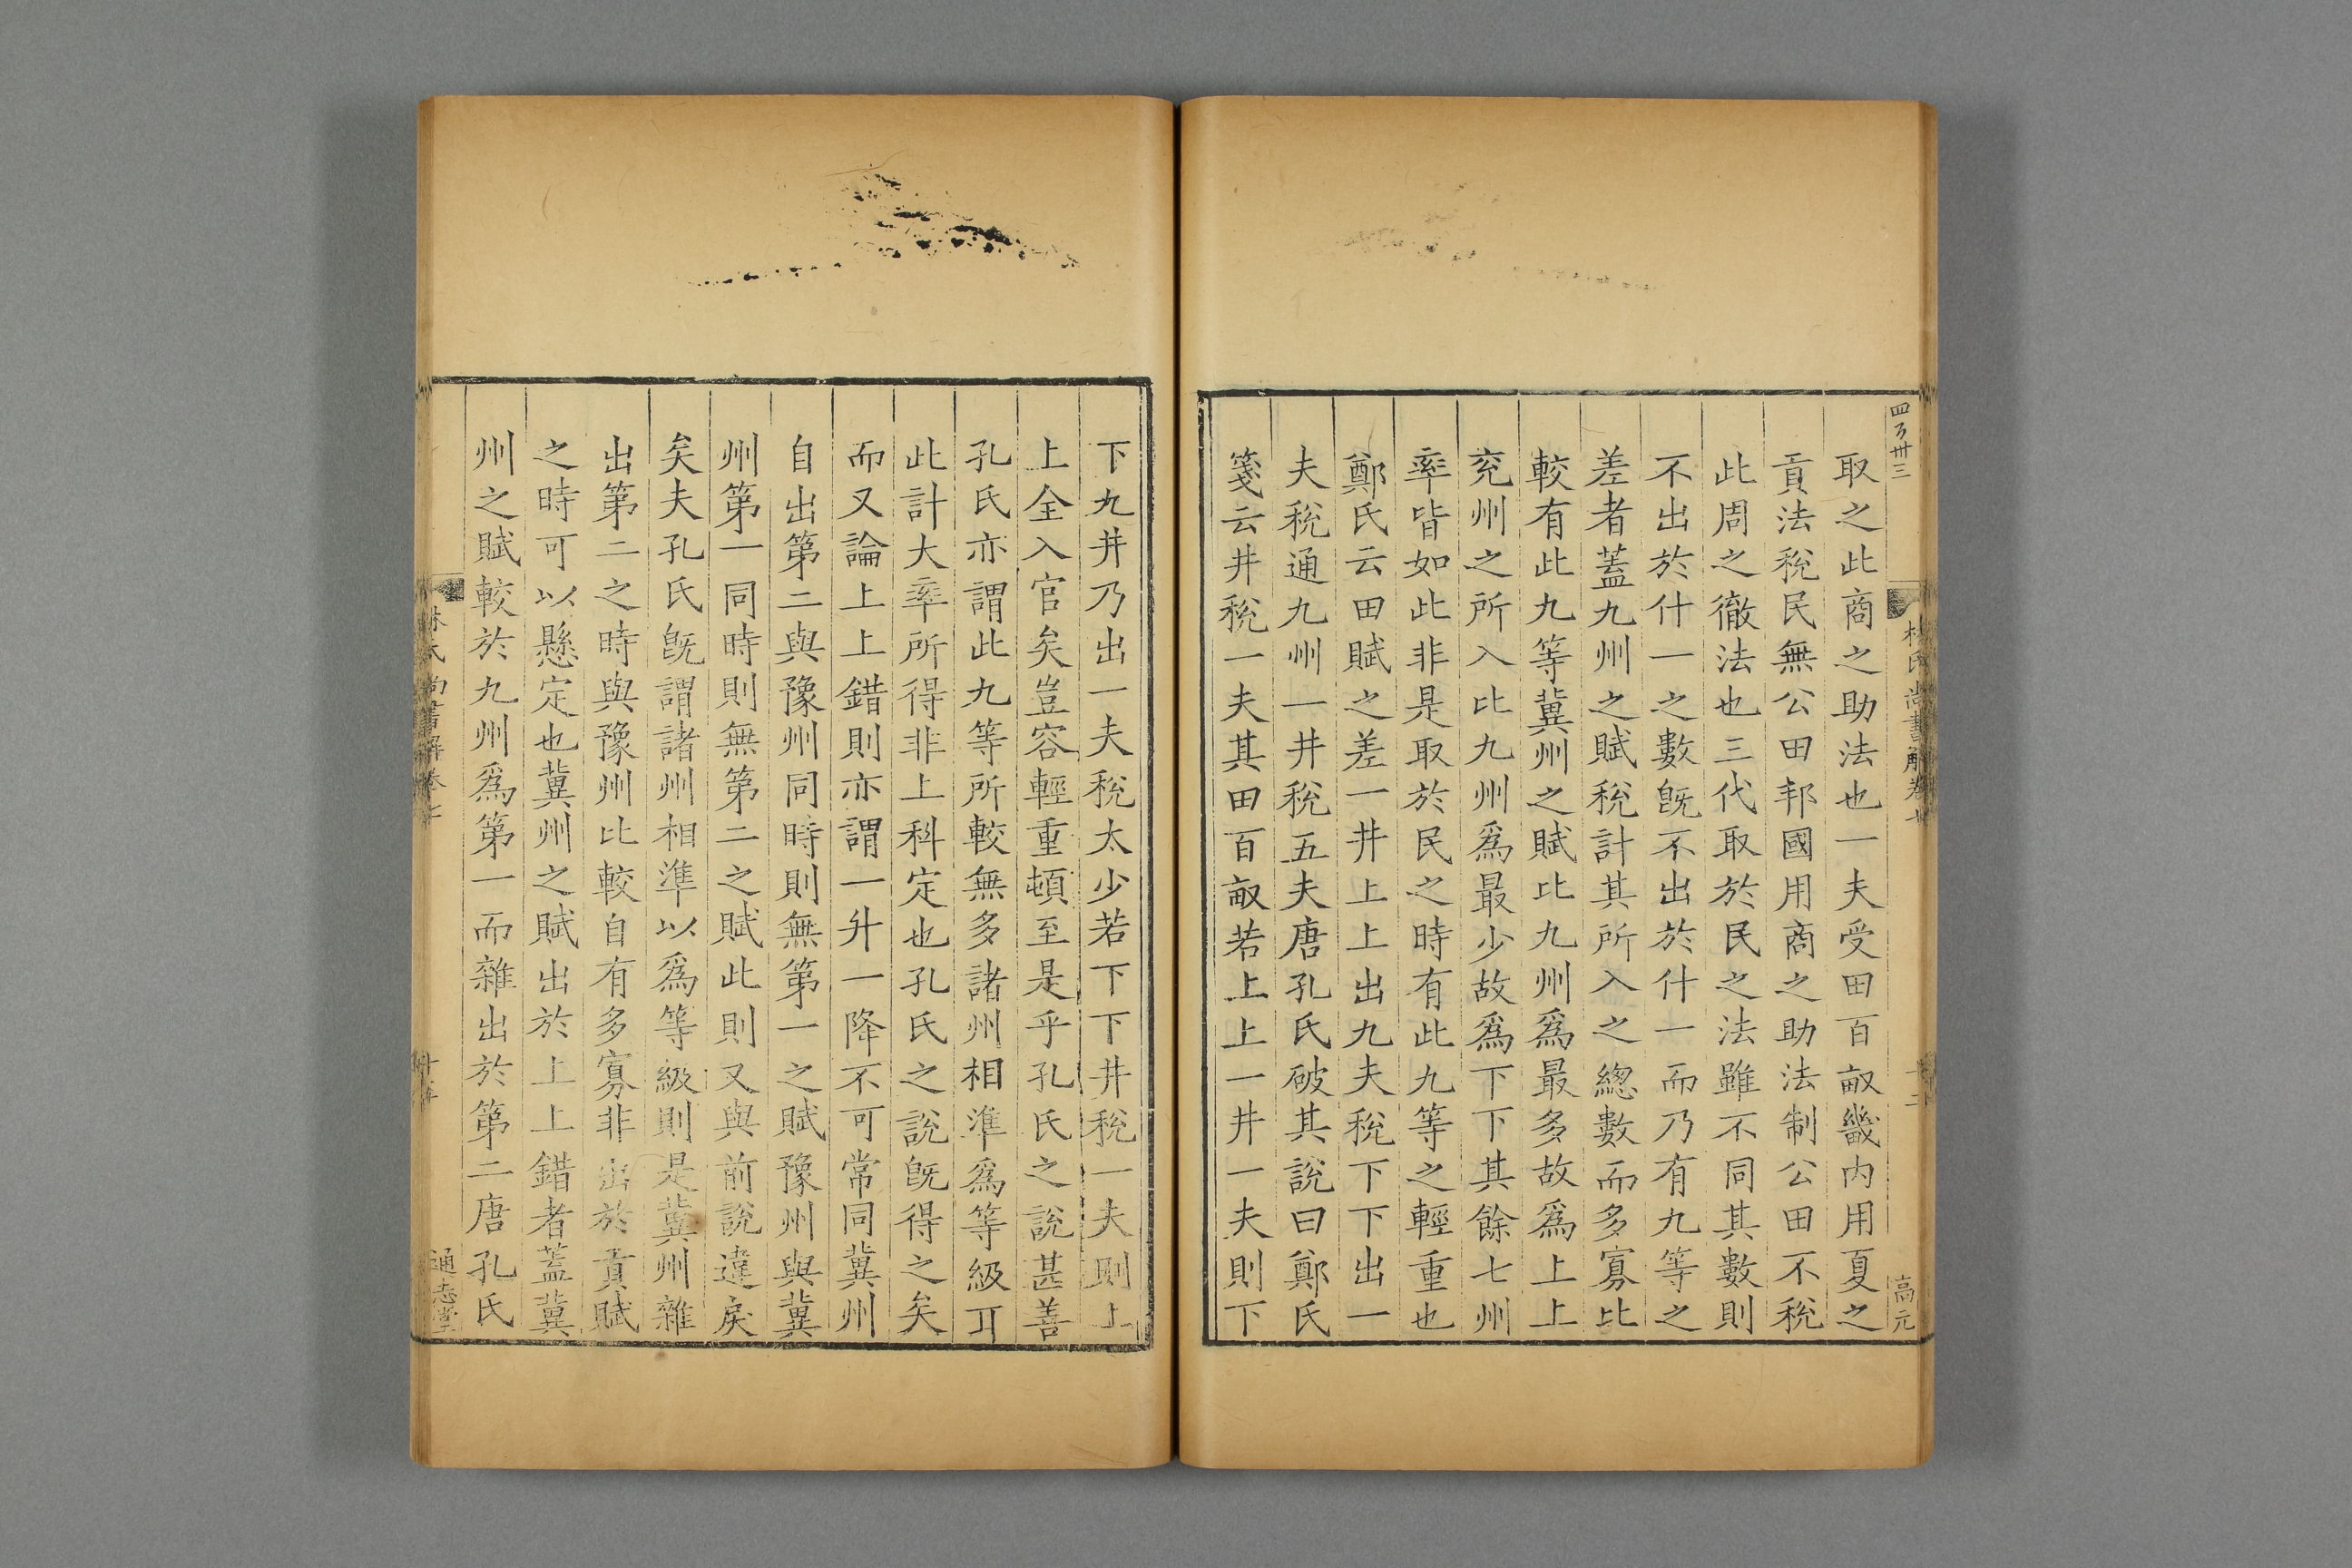 四百卅三
林氏尚書解卷七
高元
取之此商之助法也一夫受田百畝畿内用夏之
貢法稅民無公田邦國用商之助法制公田不稅
此周之徹法也三代取於民之法雖不同其數則
不出於什一之數旣不出於什一而乃有九等之
差者蓋九州之賦稅計其所入之總數而多寡比
較有此九等冀州之賦比九州爲最多故爲上上
兖州之所入比九州爲最少故爲下下其餘七州
率皆如此非是取於民之時有此九等之輕重也
鄭氏云田賦之差一井上上出九夫稅下下出一
夫稅通九州一井稅五夫唐孔氏破其說曰鄭氏
箋云井稅一夫其田百畝若上上一井一夫則下
下九井乃出一夫稅太少若下下井稅一夫則上
上全入官矣豈容輕重頓至是乎孔氏之說甚善
孔氏亦謂此九等所較無多諸州相準爲等級耳
此計大率所得非上科定也孔氏之說旣得之矣
而又論上上錯則亦謂一升一降不可常同冀州
自出第二與豫州同時則無第一之賦豫州與冀
州第一同時則無第二之賦此則又與前說違戾
矣夫孔氏旣謂諸州相準以爲等級則是冀州雜
出第二之時與豫州比較自有多寡非出於責賦
之時可以懸定也冀州之賦出於上上錯者蓋冀
州之賦較於九州爲第一而雜出於第二唐孔氏
林氏尚書解卷七
通志堂